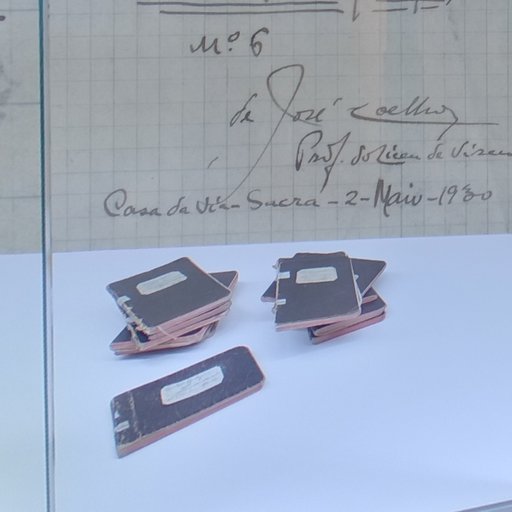 Nº 6
de José Coelho
Prof. do Liceu de Viseu
Casa da Via-Sacra - 2-Maio-1930